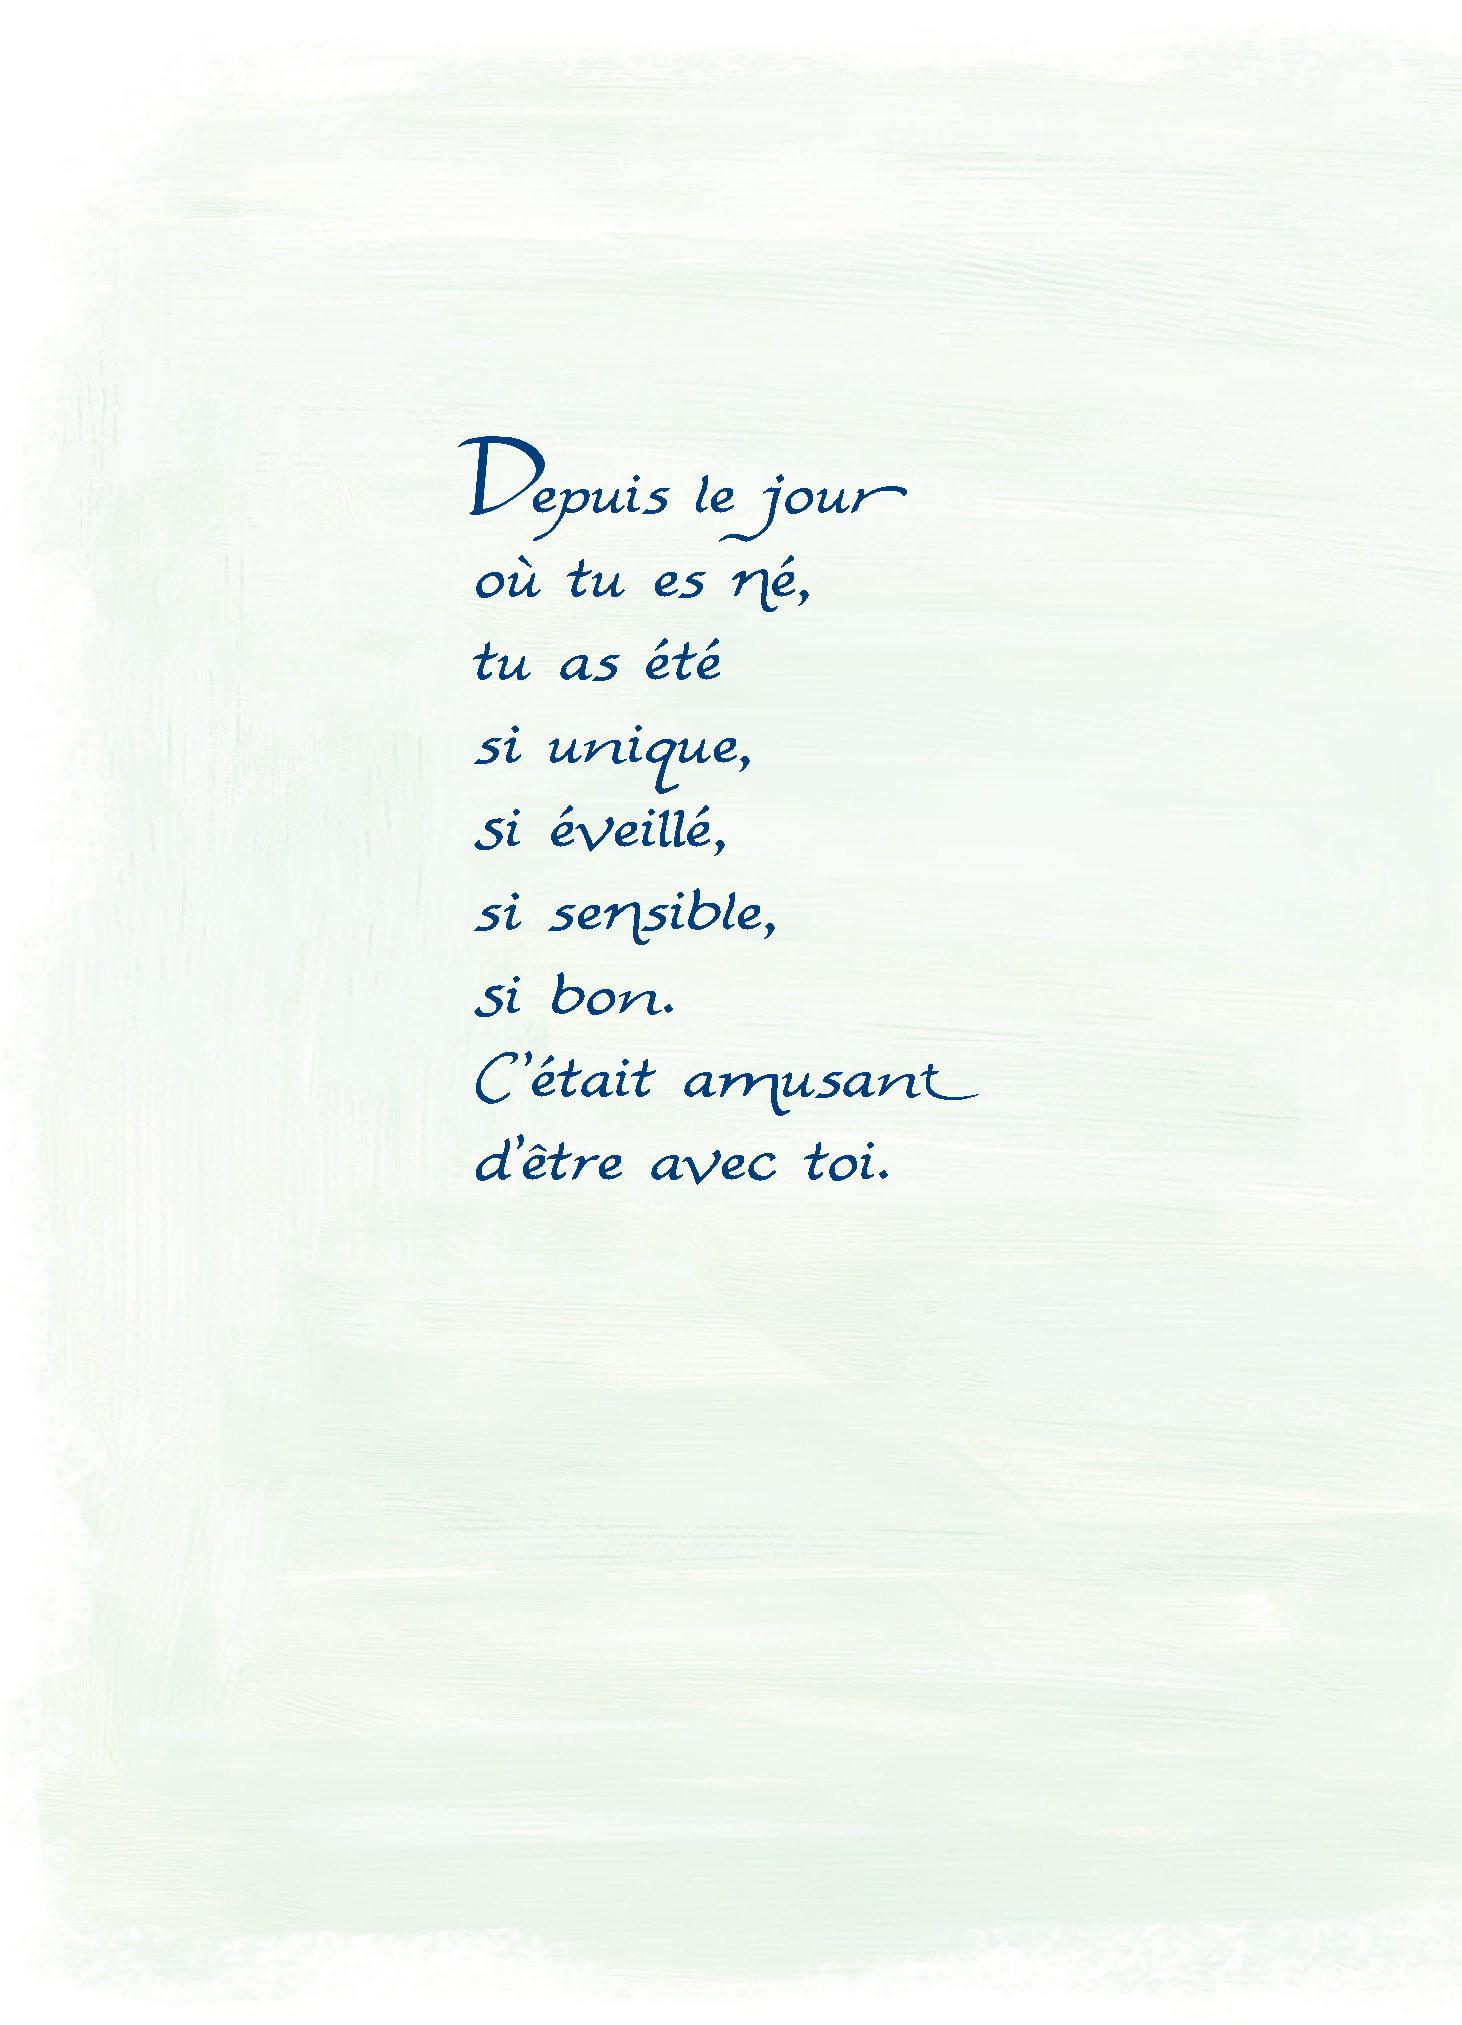 Depuis le jour
où tu es né,
tu as été
si unique,
si éveillé,
si sensible,
si bon.
C'était amusant
d'être avec toi.